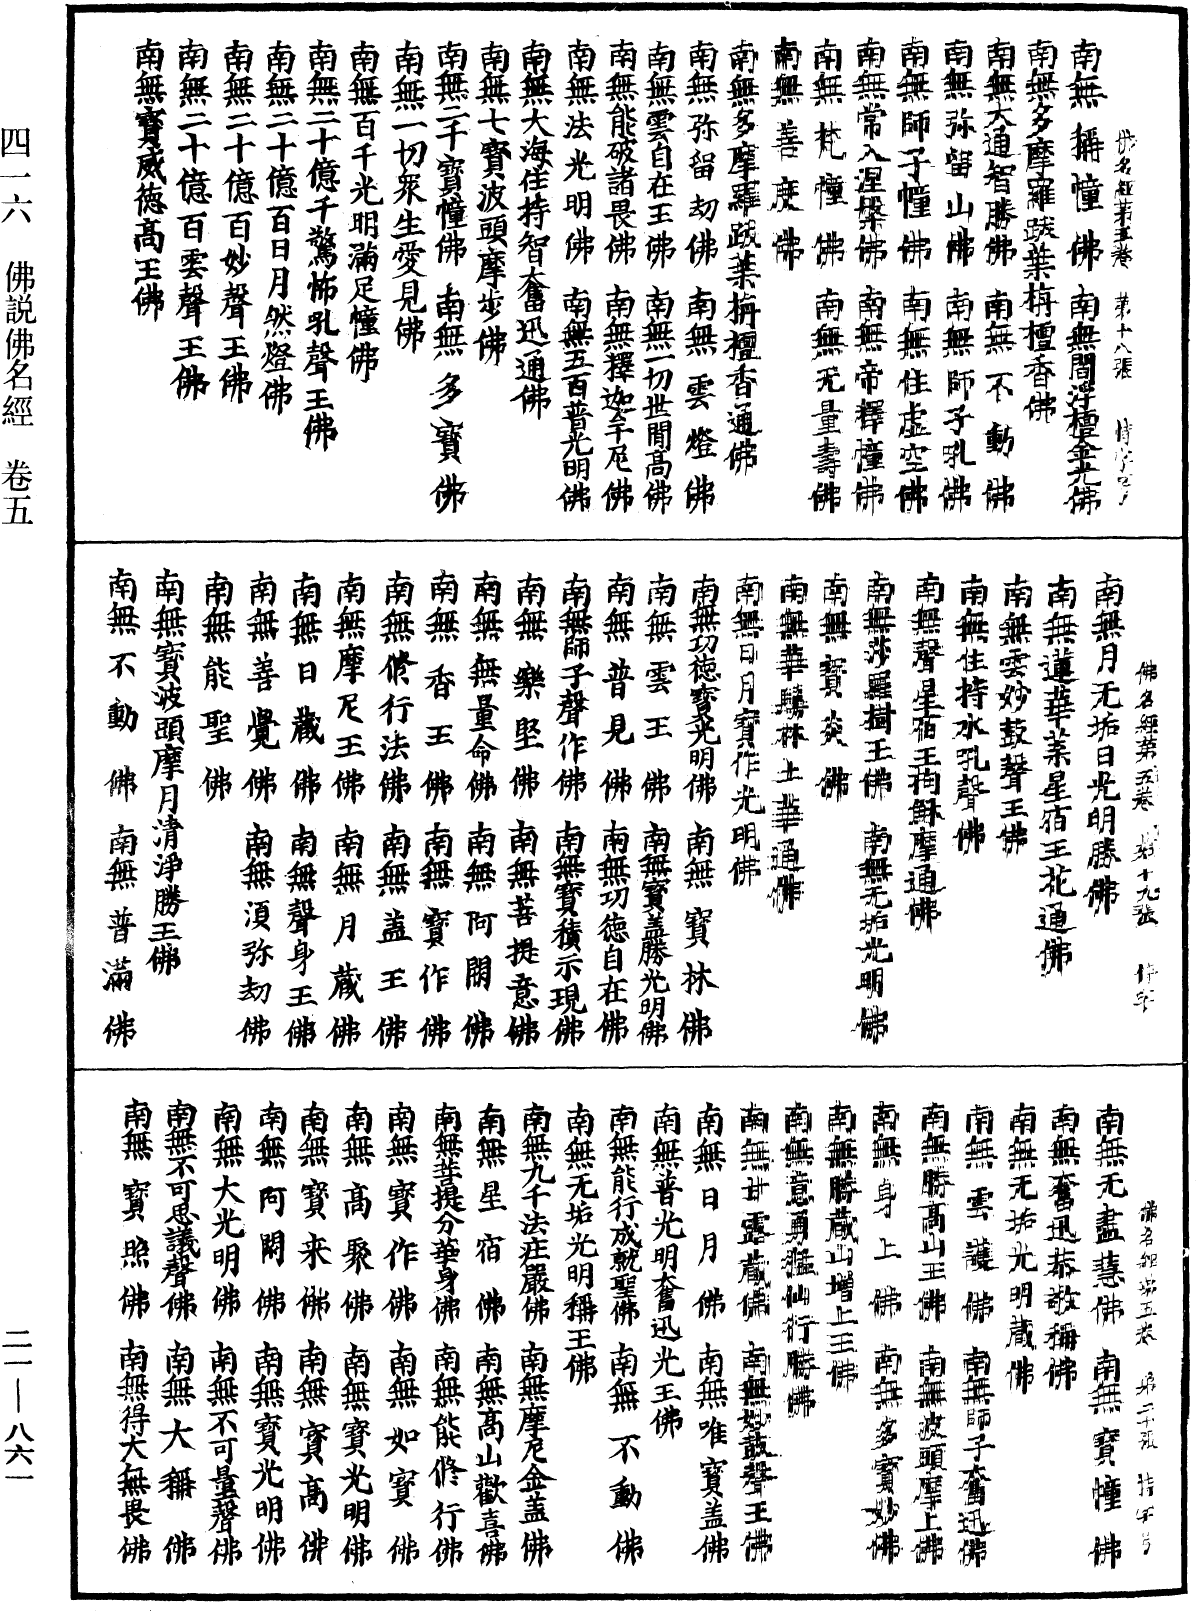 四一六　佛説佛名經　卷五
二一—八六一
佛名經第五卷　第十八張
南無稱幢佛　南無閻浮檀金光佛
南無多摩羅跋葉栴檀香佛
南無大通智勝佛　南無不動佛
南無弥留山佛　南無師子吼佛
南無師子幢佛　南無住虚空佛
南無常入涅槃佛　南無帝釋幢佛
南無梵幢佛　南無无量壽佛
南無善度佛
南無多摩羅跋葉栴檀香通佛
南無弥留劫佛　南無雲燈佛
南無雲自在王佛　南無一切世間高佛
南無能破諸畏佛　南無釋迦牟尼佛
南無法光明佛　南無五百普光明佛
南無大海住持智奮迅通佛
南無七寶波頭摩步佛
南無二千寶幢佛　南無多寶佛
南無一切衆生愛見佛
南無百千光明滿足幢佛
南無二十億千驚怖吼聲王佛
南無二十億百日月然燈佛
南無二十億百妙聲王佛
南無二十億百雲聲王佛
南無寶威德高王佛
佛名經第五卷　第十九張
南無月无垢日光明勝佛
南無蓮華葉星宿王花通佛
南無雲妙鼓聲王佛
南無住持水吼聲佛
南無聲星宿王拘穌摩通佛
南無莎羅樹王佛　南無无垢光明佛
南無寶炎佛
南無華勝林上華通佛
南無日月寶作光明佛
南無功德寶光明佛　南無寶林佛
南無雲王佛　南無寶盖勝光明佛
南無普見佛　南無功德自在佛
南無師子聲作佛　南無寶積示現佛
南無樂堅佛　南無菩提意佛
南無無量命佛　南無阿閦佛
南無香王佛　南無寶作佛
南無修行法佛　南無盖王佛
南無摩尼王佛　南無月藏佛
南無日藏佛　南無聲身王佛
南無善覺佛　南無湏弥劫佛
南無能聖佛
南無寶波頭摩月清淨勝王佛
南無不動佛　南無普滿佛
佛名經第五卷　第二十張
南無无盡慧佛　南無寶幢佛
南無奮迅恭敬稱佛
南無无垢光明藏佛
南無雲護佛　南無師子奮迅佛
南無勝高山王佛　南無波頭摩上佛
南無身上佛　南無多寶妙佛
南無勝藏山增上王佛
南無意勇猛仙行勝佛
南無甘露藏佛　南無妙鼓聲王佛
南無日月佛　南無唯寶盖佛
南無普光明奮迅光王佛
南無能行成就聖佛　南無不動佛
南無无垢光明稱王佛
南無九千法庄嚴佛　南無摩尼金盖佛
南無星宿佛　南無高山歡喜佛
南無菩提分華身佛　南無能修行佛
南無寶作佛　南無如寶佛
南無高聚佛　南無寶光明佛
南無寶来佛　南無寶高佛
南無阿閦佛　南無寶光明佛
南無大光明佛　南無不可量聲佛
南無不可思議聲佛　南無大稱佛
南無寶照佛　南無得大無畏佛